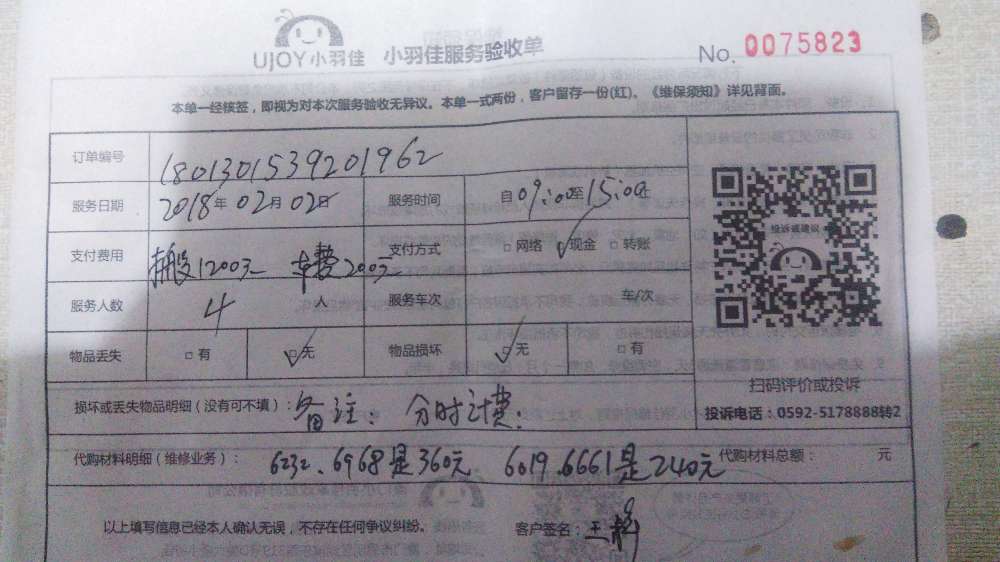 UJOY小羽佳 小羽佳服务验收单
No. 0075823
本单一经核签，即视为对本次服务验收无异议。本单一式两份，客户留存一份(红)。《维保须知》详见背面。
订单编号 1801301539201962
服务日期 2018年02月02日 服务时间 自09:00至15:00止
支付费用 搬股1200元 车费200元 支付方式 □网络 ☑现金 □转账
服务人数 4 服务车次 车/次
物品丢失 □有 ☑无 物品损坏 ☑无 □有
投诉或建议
扫码评价或投诉
投诉电话：0592-5178888转2
损坏或丢失物品明细（没有可不填）：备注：分时计费！
代购材料明细（维修业务）：6232、6968是360元 6019、6661是240元 代购材料总额： 元
以上填写信息已经本人确认无误，不存在任何争议纠纷。 客户签名：